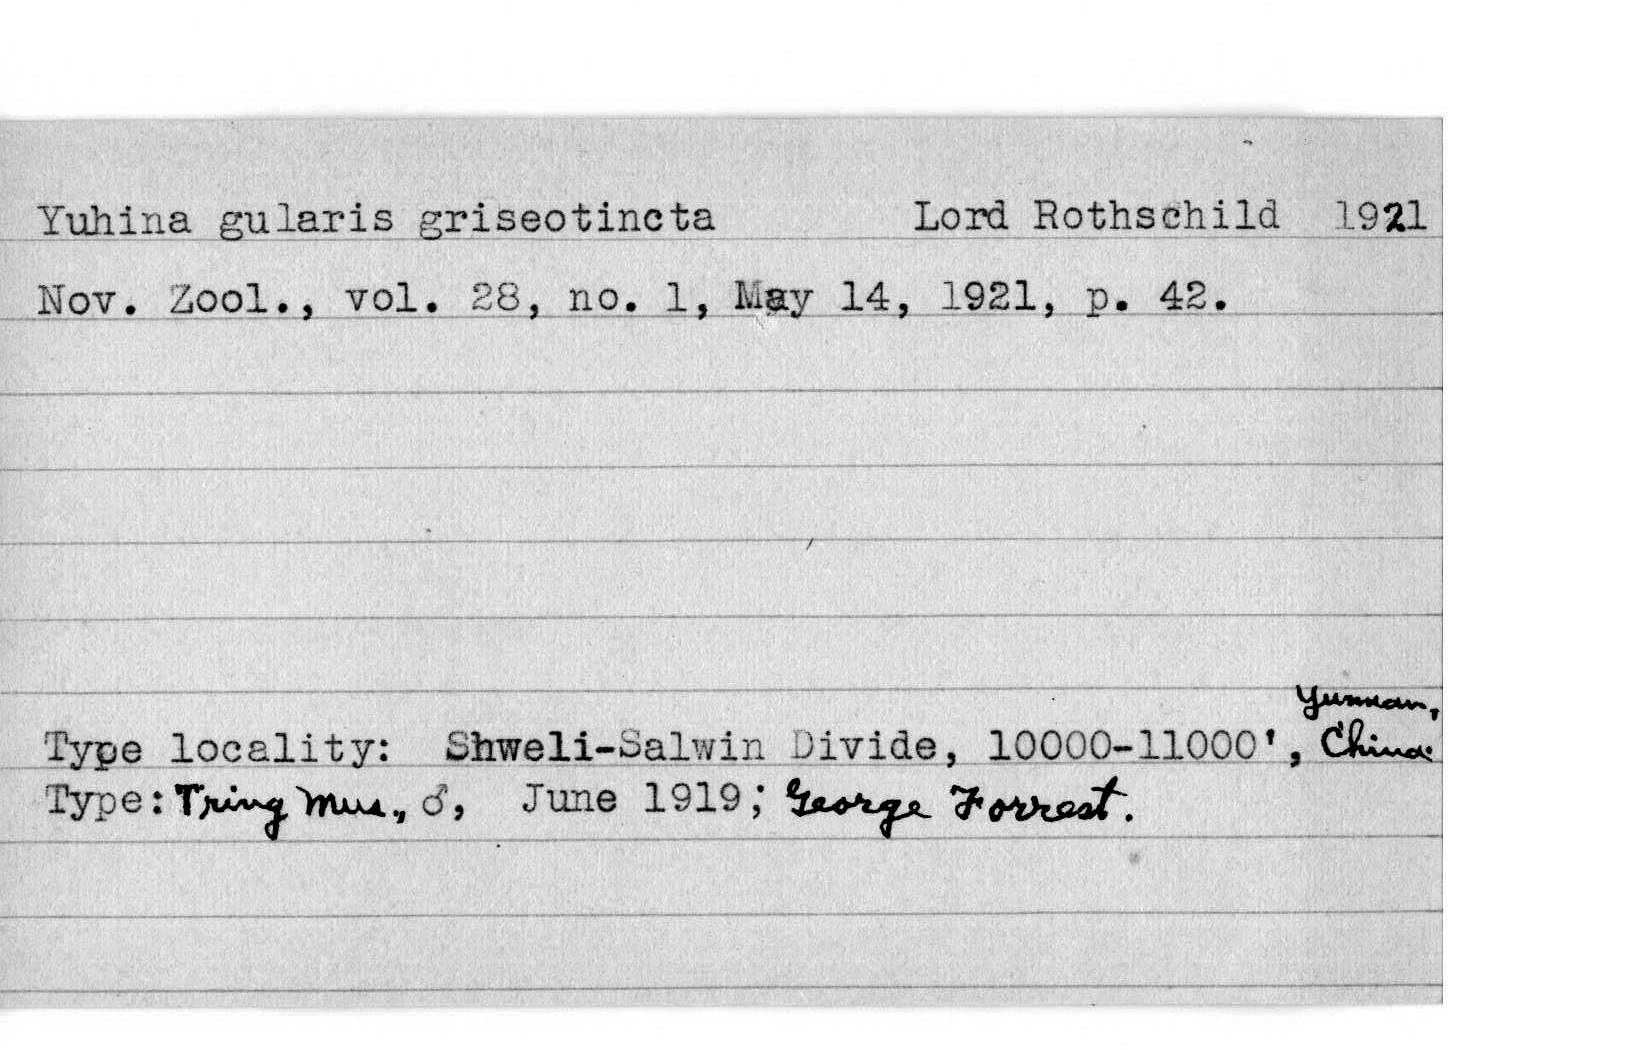 Yuhina gularis griseotincta Lord Rothschild 1921
Nov. Zool., vol. 28, no. 1, May 14, 1921, p. 42.
Yunnan,
Type locality: Shweli-Salwin Divide, 10000-11000', China.
Type: Tring Mus., ♂, June 1919; George Forrest.